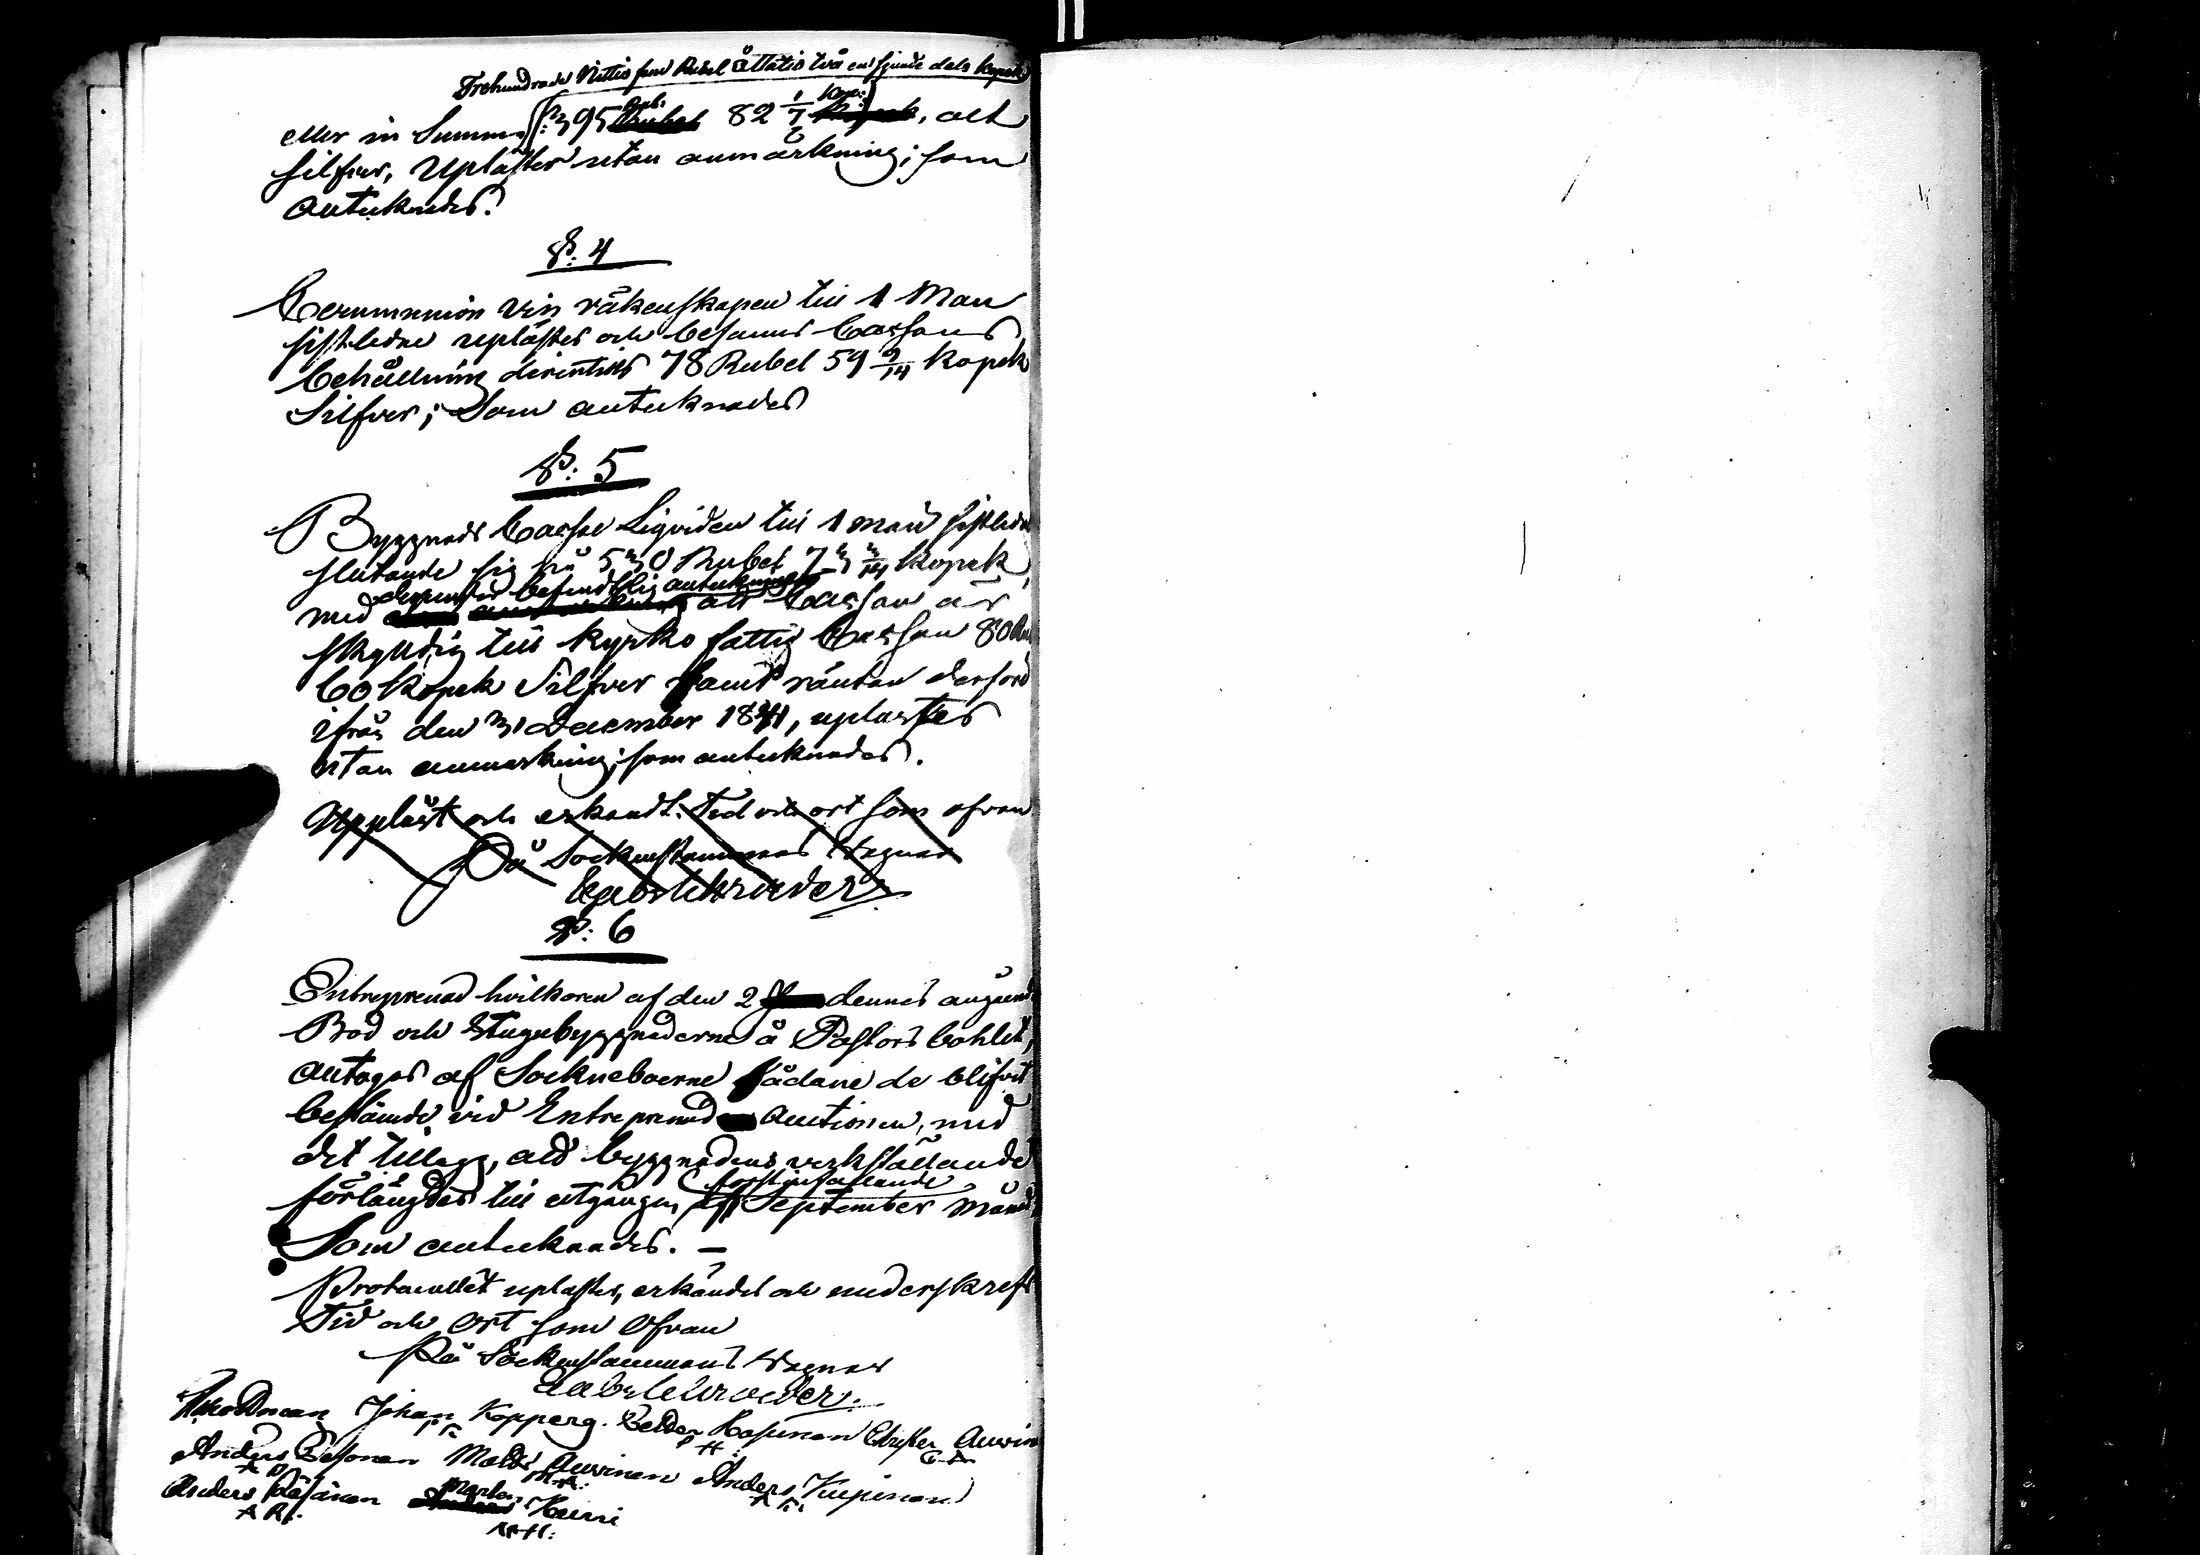 Trehundrade Nittio fem Rubel åttatio två en sjunde dels kopek
eller in Summa (: 395 Rub. 82 1/7 Kop:), alt
silfver, uplästes utan anmärkning; som
antecknades.
§: 4
Communion vin räkenskapen till 1 Maii
sistledne uplästes och befanns Cassans
behållning 78 Rubel 59 9/14 kopek
Silfver; Som antecknades
§: 5
Byggnads Cassae Liqviden till 1 Maii sistledne
slutande sig på 530 Rubel 73 3/14 kopek,
med befindtlig anteckning
att Cassan är
skyldig till kyrko fattig Cassan 80 Rub
60 kopek Silfver samt räntan derför
ifrån den 31 December 1841, uplästes
utan anmärkning; som antecknades.
Uppläst och erkändt. Tid och ort som ofvan
På Sockenstämmans vägnar
§: 6
Entreprenad vilkoren af den 2 dennes angående
Bod och Stugubyggnaderne å Pastors bohlet,
antogos af Sockneboerne sådane de blifvit
bestämde vid Entreprenad auctionen, med
det tillägg, att byggnadens verkställande
förlängdes till utgången af förstinfallande September månad,
Som antecknades. —
Protocollet uplästes, erkändes och underskrefs
Tid och Ort som Ofvan
På Sockenstämmans vägnar
Johan Kopperg. Hassinen Christer Auvin
Anders Besonen Matts Auvinen Anders
A M.A:
Anders Räsänen Marten
A R.